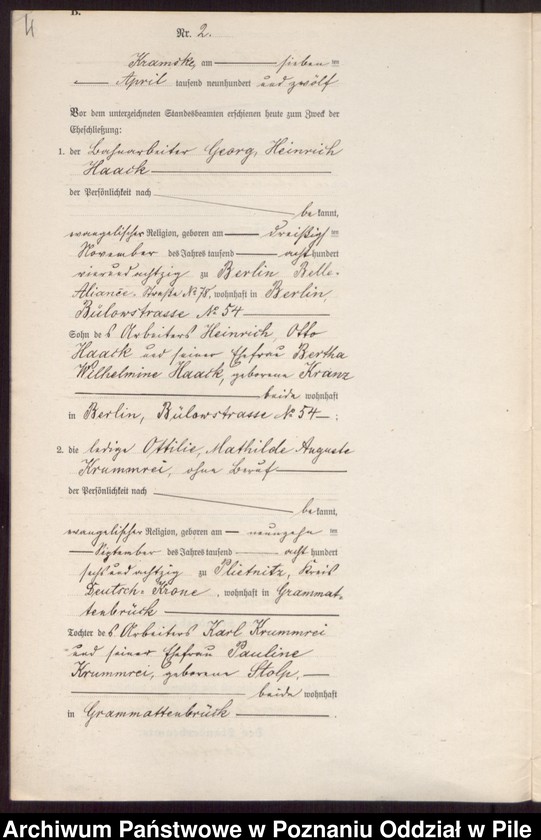 4
B.
Nr. 2.
Kramske, am sieben ten
April tausend neunhundert und zwölf
Vor dem unterzeichneten Standesbeamten erschienen heute zum Zweck der
Eheschließung:
1. der Bahnarbeiter Georg, Heinrich
Haack
der Persönlichkeit nach
be kannt,
evangelischer Religion, geboren am dreißigs ten
November des Jahres tausend acht hundert
vierundachtzig zu Berlin Belle-
Aliance-Straße No 78, wohnhaft in Berlin,
Bülowstrasse No 54
Sohn des Arbeiters Heinrich, Otto
Haack und seiner Ehefrau Bertha
Wilhelmine Haack, geborene Kranz
beide wohnhaft
in Berlin, Bülowstrasse No 54 ;
2. die ledige Ottilie, Mathilde Auguste
Krummrei, ohne Beruf
der Persönlichkeit nach
be kannt,
evangelischer Religion, geboren am neunzehn ten
September des Jahres tausend acht hundert
sechsundachtzig zu Plietnitz, Kreis
Deutsch-Krone, wohnhaft in Grammat-
tenbrück
Tochter des Arbeiters Karl Krummrei
und seiner Ehefrau Pauline
Krummrei, geborene Stolp,
beide wohnhaft
in Grammattenbrück .
Archiwum Państwowe w Poznaniu Oddział w Pile